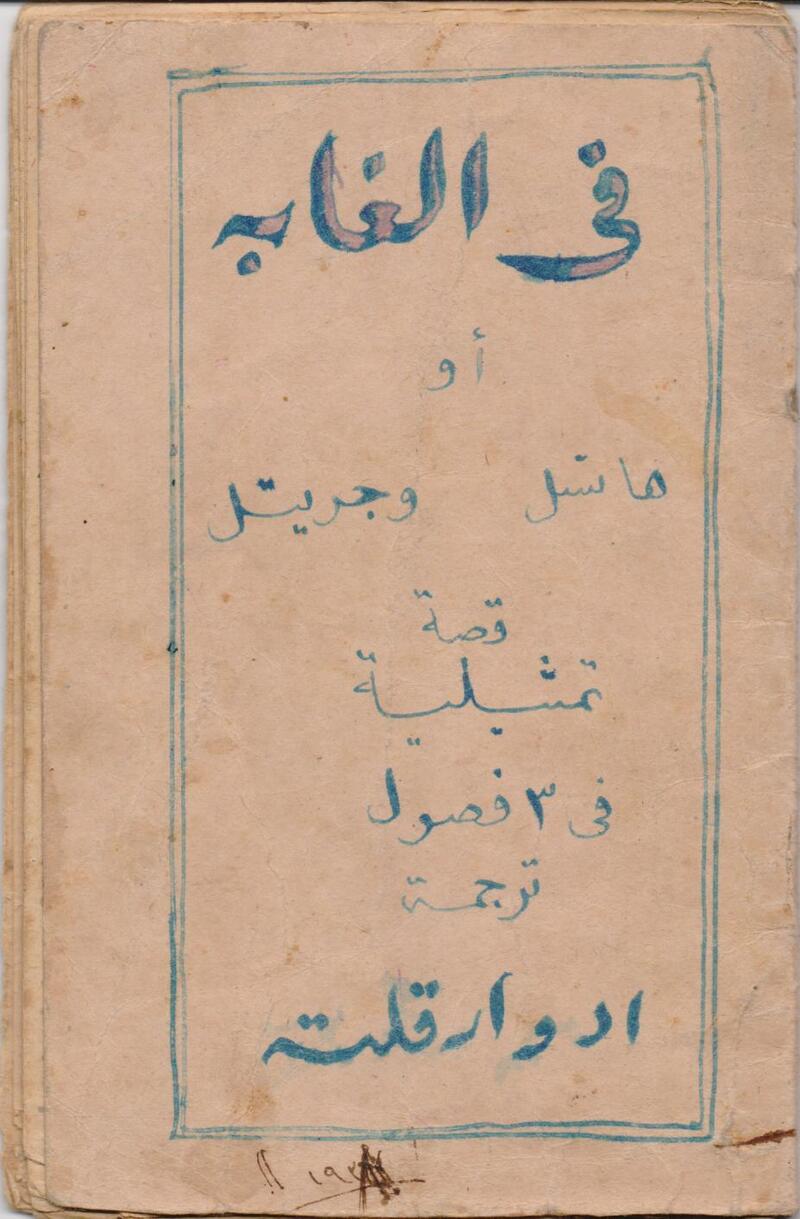 فى الغابه
أو
هانسل وجريتل
قصة
تمثيلية
فى ٣ فصول
ترجمة
ادوار قلته